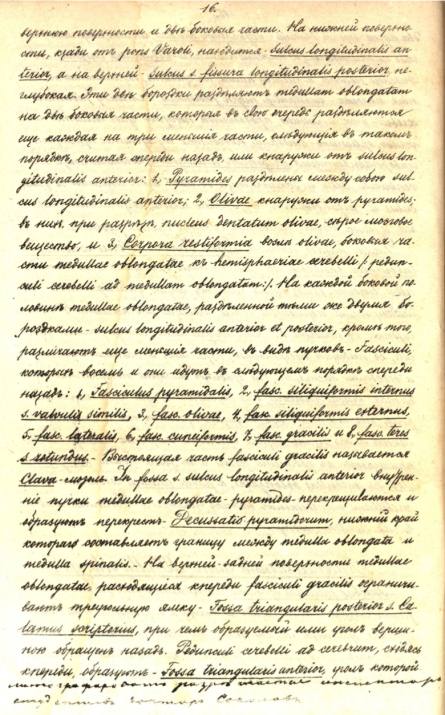 16.
верхнюю поверхности и двѣ боковыя части. На нижней поверхно-
сти, кзади отъ pons Varoli, находится - sulcus longitudinalis an-
terior, а на верхней - sulcus s. fissura longitudinalis posterior не-
глубокая. Эти двѣ бороздки раздѣляютъ medullam oblongatam
на двѣ боковыя части, которыя въ свою очередь раздѣляются
еще каждая на три меньшія части, слѣдующія въ такомъ
порядкѣ, считая спереди назадъ, или кнаружи отъ sulcus lon-
gitudinalis anterior: 1, Pyramides раздѣлены между собою sul-
cus longitudinalis anterior; 2, Olivae кнаружи отъ pyramides;
въ нихъ, при разрѣзѣ, nucleus dentatum olivae, сѣрое мозговое
вещество, и 3, Corpora restiformia возлѣ olivae, боковыя ча-
сти medullae oblongatae къ hemisphaeriae cerebelli /: pedun-
culi cerebelli ad medullam oblongatam:/. На каждой боковой по-
ловинѣ medullae oblongatae, раздѣленной тѣми же двумя бо-
роздками - sulcus longitudinalis anterior et posterior, кромѣ того,
различаютъ еще меньшія части, въ видѣ пучковъ - Fasciculi,
которыхъ восемь и они идутъ въ слѣдующемъ порядкѣ спереди
назадъ: 1, Fasciculus pyramidalis, 2, fasc. siliquiformis internus
s. valvula similis, 3, fasc. olivae, 4, fasc. siliquiformis externus,
5, fasc. lateralis, 6, fasc. cuneiformis, 7, fasc. gracilis и 8, fasc. teres
s. rotundus. - Выстоящая часть fasciculi gracilis называется
Clava - мозоль. In fossa s. sulcus longitudinalis anterior внутрен-
ніе пучки medullae oblongatae - pyramides - перекрещиваются и
образуютъ перекрестъ - Decussatio pyramidorum, нижній край
котораго составляетъ границу между medulla oblongata и
medulla spinalis. - На верхней - задней поверхности medullae
oblongatae, расходящіяся кпереди fasciculi gracilis ограничи-
ваютъ треугольную ямку - Fossa triangularis posterior s. Ca-
lamus scriptorius, при чемъ образуемый ими уголъ верши-
ною обращенъ назадъ. Pedunculi cerebelli ad cerebrum, сходясь
кпереди, образуютъ - Fossa triangularis anterior, уголъ которой